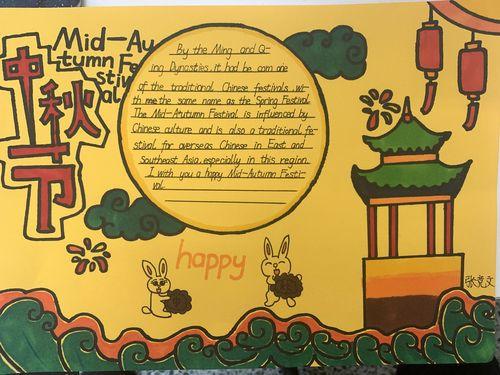 中秋节
Mid-Au
tumn Fe
stiv
al
By the Ming and Q-
ing Dynasties, it had be com one
of the traditional Chinese festivals, wi-
th me the same name as the Spring Festival.
The Mid-Atutumn Festival is influenced by
Chinese culture and is also a traditional fe-
stival for overseas Chinese in East and
Southeast Asia, especially in this region.
I with you a happy Mid-Autumn Festi-
val.
happy